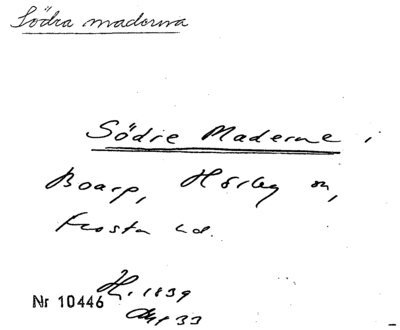 Södra maderna
Södre Maderne i
Boarp, Hörby sn,
Frosta hd.
H. 1839
Nr 10446
33